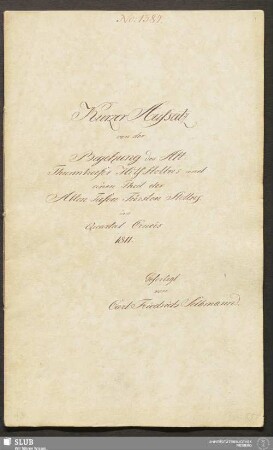 No: 1389.
Kurzer Aufsatz
von der
Begehung des Alt
Thurmhofer Hilf Stollns und
eines Theil des
Alten Tiefen Fürsten Stollns
im
Quartal Crucis
1811.
Gefertigt
von
Carl Friedrich
SLUB